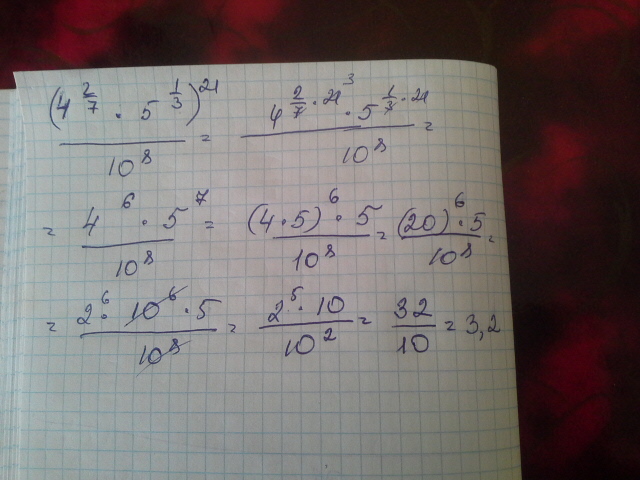 (4^{2/7} · 5^{1/3})^{21} / 10^8 = 4^{2/7 · 21^3} · 5^{1/3 · 21} / 10^8 =
= 4^6 · 5^7 / 10^8 = (4·5)^6 · 5 / 10^8 = (20)^6 · 5 / 10^8 =
= 2^6 · 10^6 · 5 / 10^8 = 2^5 · 10 / 10^2 = 32 / 10 = 3,2